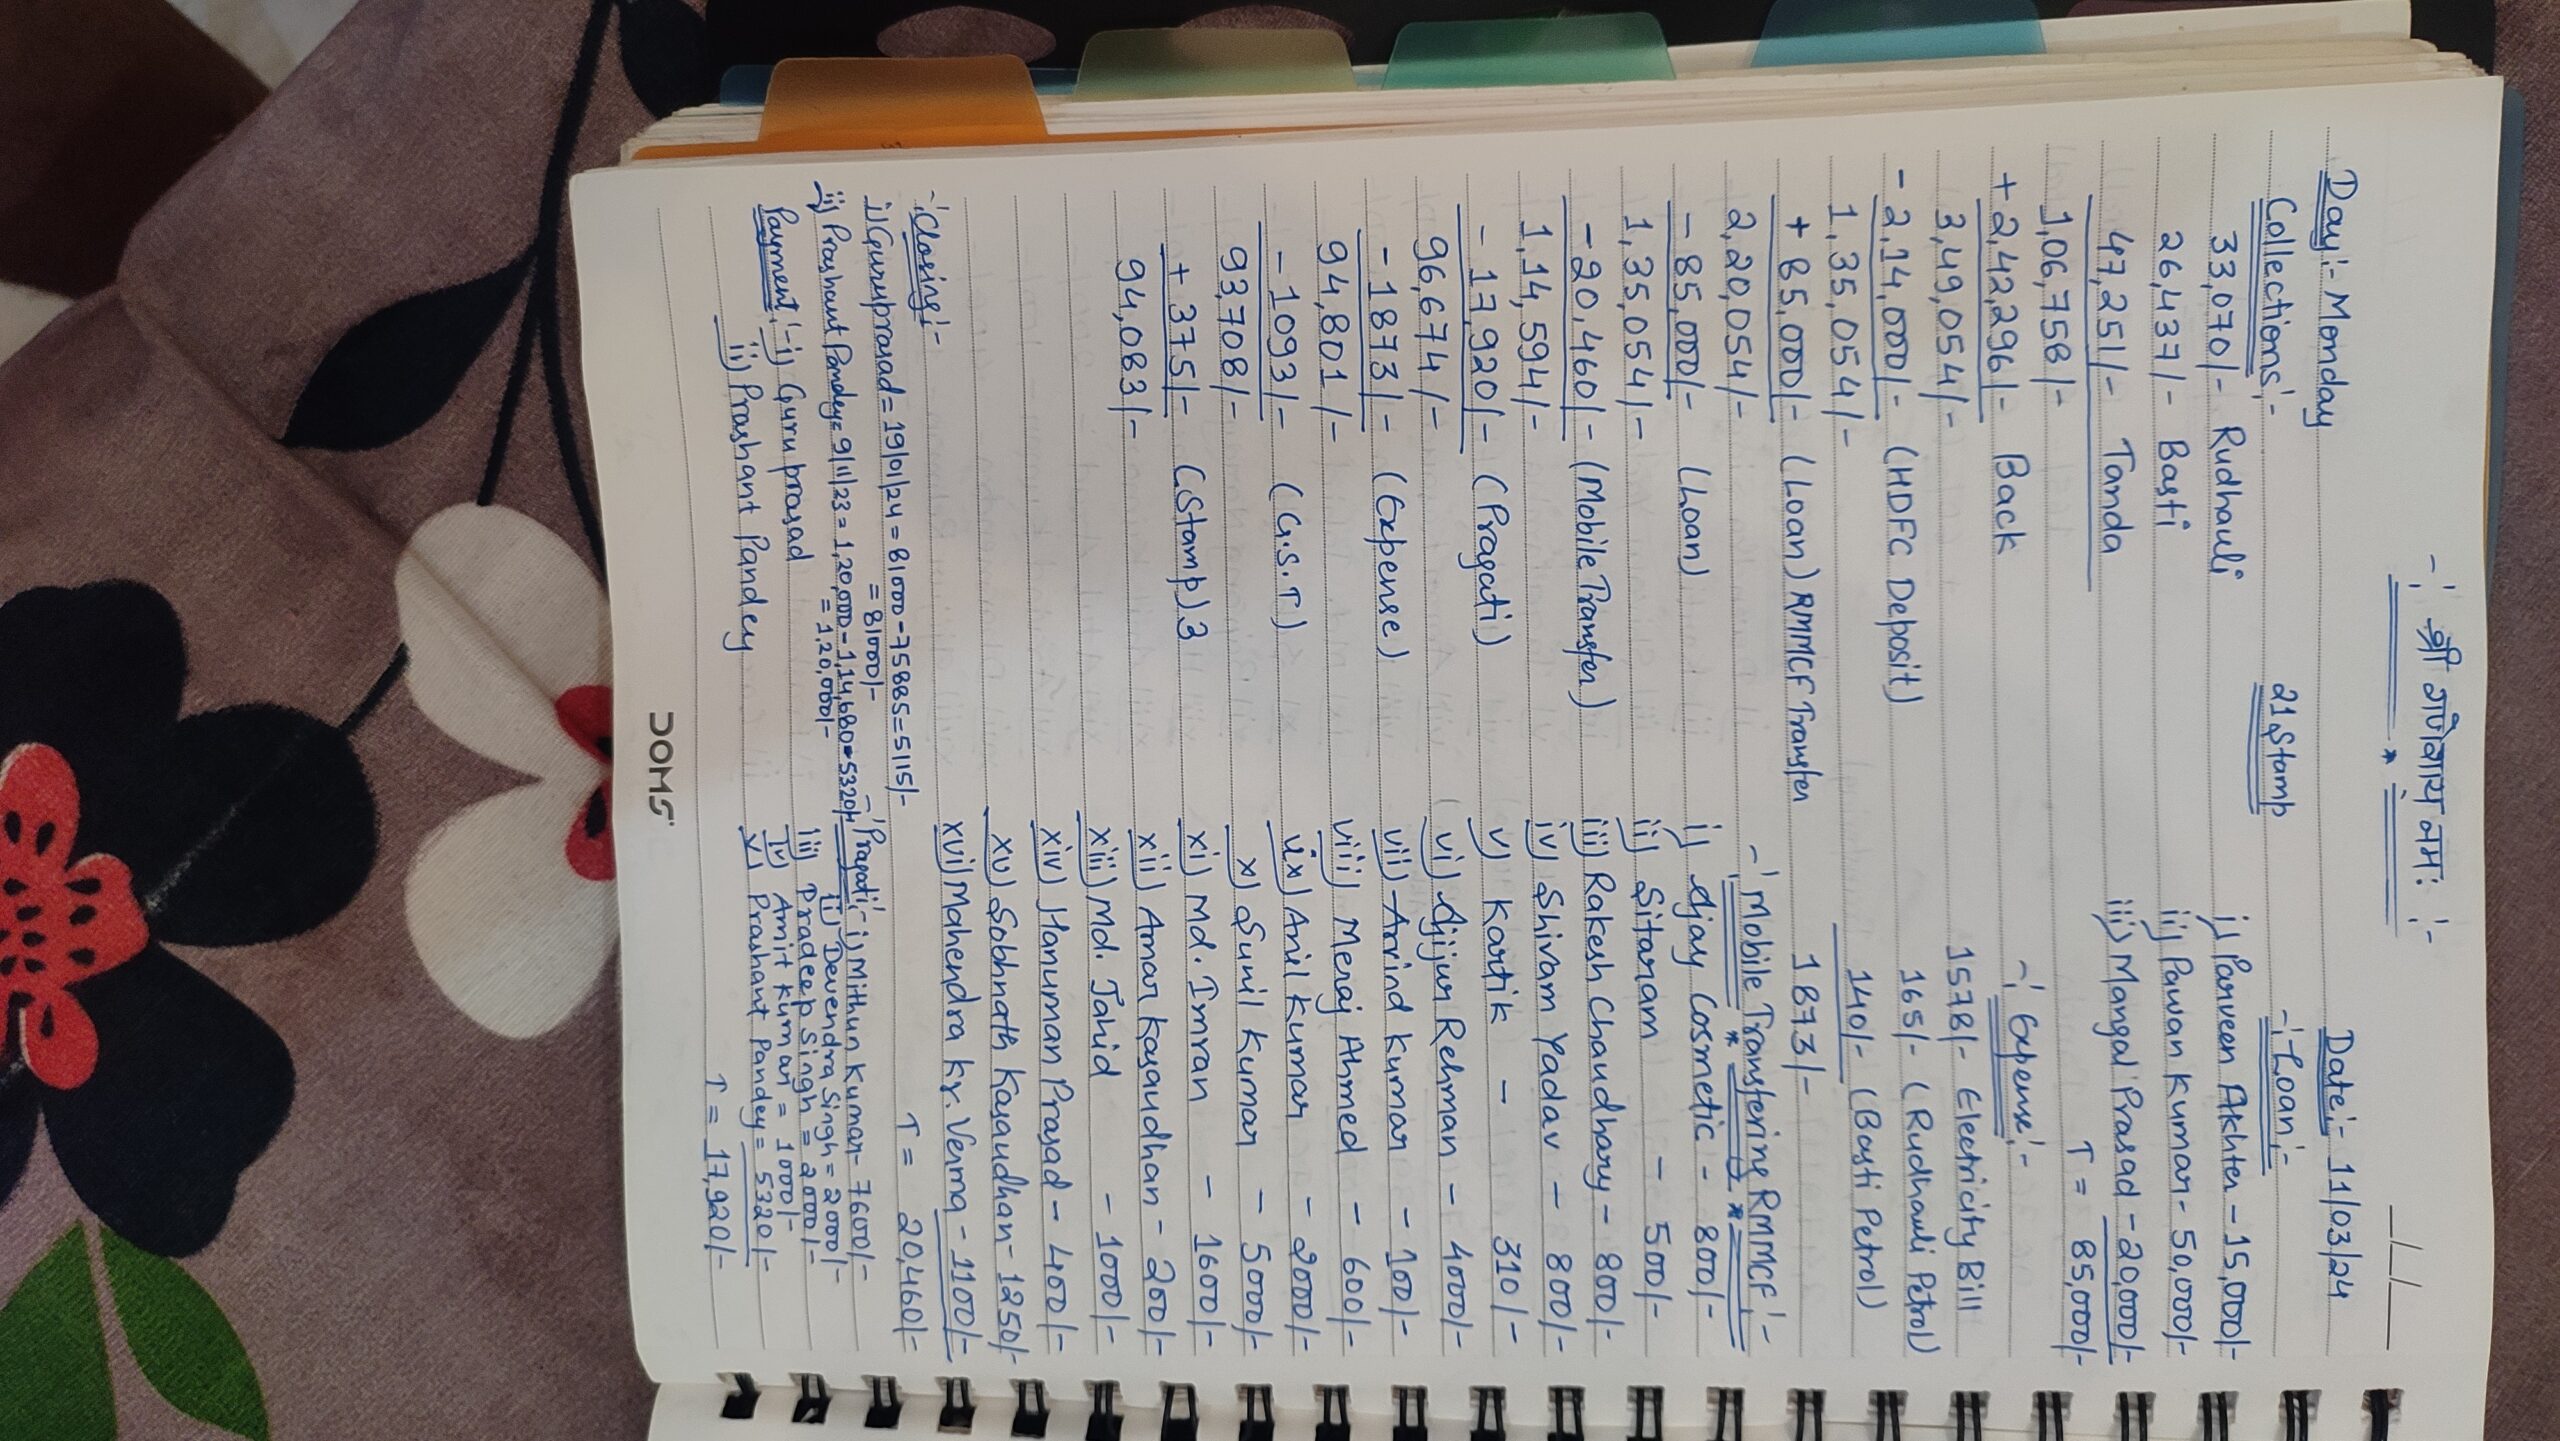 -: श्री गणेशाय नमः :-
Day:- Monday
Date:- 11/03/24
Collections:-
21 Stamp
33,070/- Rudhauli
26,437/- Basti
47,251/- Tanda
1,06,758/-
+ 2,42,296/- Back
3,49,054/-
- 2,14,000/- (HDFC Deposit)
1,35,054/-
+ 85,000/- (Loan) RMMCF Transfer
2,20,054/-
- 85,000/- (Loan)
1,35,054/-
- 20,460/- (Mobile Transfer)
1,14,594/-
- 17,920/- (Pragati)
96,674/-
- 1873/- (Expense)
94,801/-
- 1093/- (G.S.T)
93,708/-
+ 375/- (Stamp) 3
94,083/-
-: Loan:-
i) Parveen Akhter - 15,000/-
ii) Pawan Kumar - 50,000/-
iii) Mangal Prasad - 20,000/-
T = 85,000/-
-: Expense:-
1578/- Electricity Bill
165/- (Rudhauli Petrol)
140/- (Basti Petrol)
1873/-
-: Mobile Transfering RMMCF:-
i) Ajay Cosmetic - 800/-
ii) Sitaram - 500/-
iii) Rakesh Chaudhary - 800/-
iv) Shivam Yadav - 800/-
v) Kartik - 310/-
vi) Ajijur Rehman - 4000/-
vii) Arvind Kumar - 100/-
viii) Meraj Ahmed - 600/-
ix) Anil Kumar - 2000/-
x) Sunil Kumar - 5000/-
xi) Md. Imran - 1600/-
xii) Amar Kasaudhan - 200/-
xiii) Md. Jahid - 1000/-
xiv) Hanuman Prasad - 400/-
xv) Sobhnath Kasaudhan - 1250/-
xvi) Mahendra Kr. Verma - 1100/-
T = 20,460/-
-: Closing:-
i) Guruprasad = 19/01/24 = 81000 - 75885 = 5115/-
= 81000/-
ii) Prashant Pandey = 9/11/23 = 1,20,000 - 1,14,680 = 5320/-
= 1,20,000/-
Payment:- i) Guruprasad
ii) Prashant Pandey
-: Pragati:- i) Mithun Kumar - 7600/-
ii) Devendra Singh = 2000/-
iii) Pradeep Singh = 2000/-
iv) Amit Kumar = 1000/-
v) Prashant Pandey = 5320/-
T = 17,920/-
DOMS